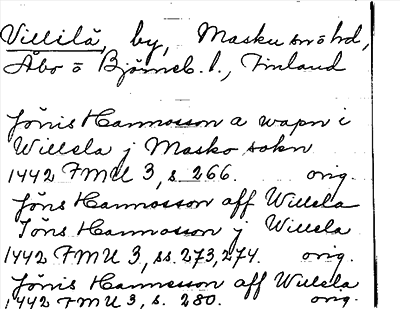 Villilä, by, Masku snöhd,
Åbo o Björneb. l., Finland
Jönis Hannosson a wapn i
Willela j Masko sokn
1442 FMU 3, s. 266. orig.
Jöns Hannosson aff Willela
Jöns Hannosson j Willela
1442 FMU 3, ss. 273, 274. orig.
Jönis Hannesson aff Willela
1442 FMU 3, s. 280. orig.